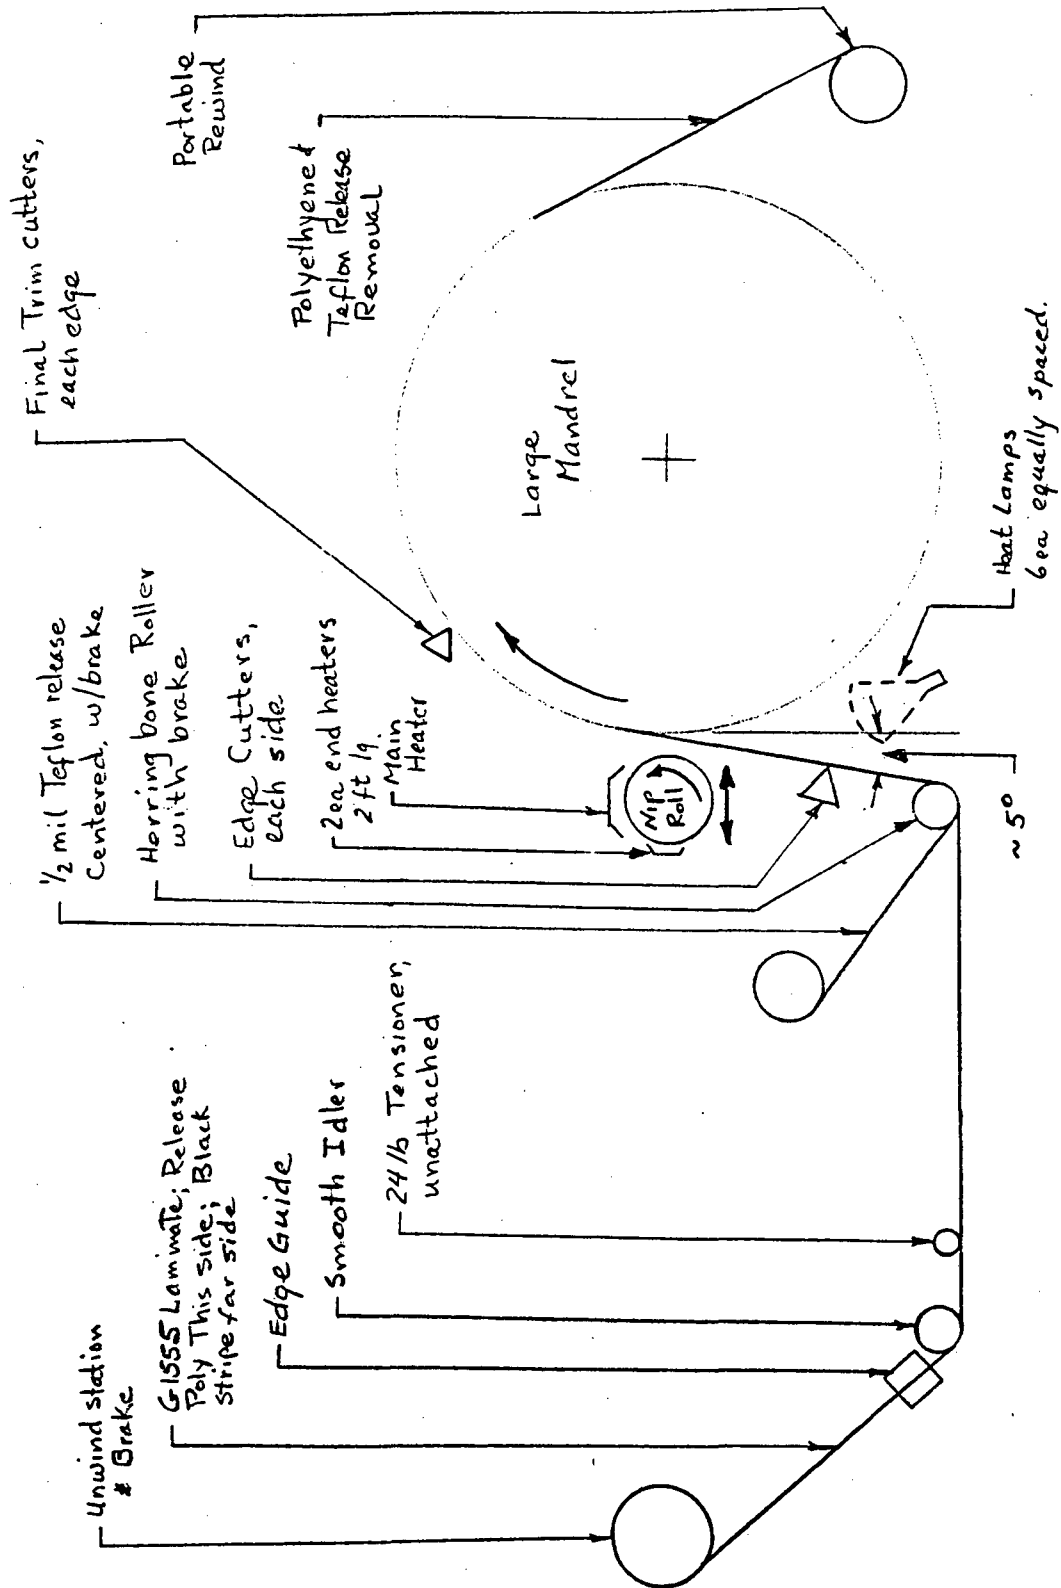 Unwind station
& Brake
G1555 Laminate; Release
Poly This side; Black
stripe far side
Edge Guide
Smooth Idler
24 lb Tensioner,
unattached
1/2 mil Teflon release
Centered, w/brake
Horring bone Roller
with brake
Edge Cutters,
each side
2ea end heaters
2 ft lg.
Main
Heater
Nip
Roll
Final Trim cutters,
each edge
Portable
Rewind
Polyethyene &
Teflon Release
Removal
Large
Mandrel
Heat Lamps
6 ea equally spaced.
~ 5°